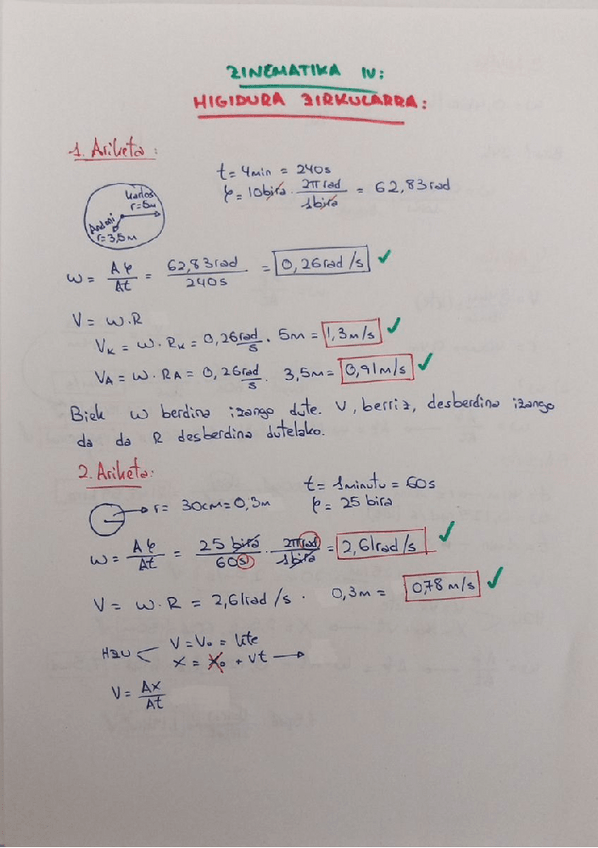 ZINEMATIKA IV:
HIGIDURA ZIRKULARRA:
1. Ariketa:
t = 4min = 240s
φ = 10 bira · 2π rad / 1 bira = 62,83 rad
Karlos
r=5m
Andoni
r=3,5m
ω = Δφ / Δt = 62,83 rad / 240s = 0,26 rad/s ✓
V = ω.R
VK = ω · RK = 0,26 rad/s · 5m = 1,3 m/s ✓
VA = ω · RA = 0,26 rad/s · 3,5m = 0,91 m/s ✓
Biek ω berdina izango dute. V, berriz, desberdina izango
da da R desberdina dutelako.
2. Ariketa:
t = 1 minutu = 60s
r = 30cm = 0,3m
φ = 25 bira
ω = Δφ / Δt = 25 bira / 60s · 2π rad / 1 bira = 2,61 rad/s ✓
V = ω · R = 2,61 rad/s · 0,3m = 0,78 m/s ✓
HZU < V = V₀ = kte
x = x₀ + vt →
V = Δx / Δt